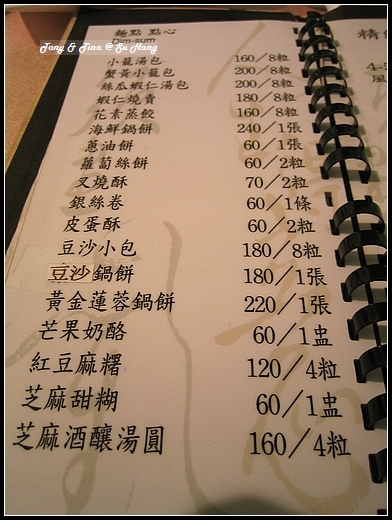 麵點 點心
Dim-sum
Tony & Tina @ Su Hang
小籠湯包 160/8粒
蟹黃小籠包 200/8粒
絲瓜蝦仁湯包 200/8粒
蝦仁燒賣 180/8粒
花素蒸餃 160/8粒
海鮮鍋餅 240/1張
蔥油餅 60/1張
蘿蔔絲餅 60/2粒
叉燒酥 70/2粒
銀絲卷 60/1條
皮蛋酥 60/2粒
豆沙小包 180/8粒
豆沙鍋餅 180/1張
黃金蓮蓉鍋餅 220/1張
芒果奶酪 60/1盅
紅豆麻糬 120/4粒
芝麻甜糊 60/1盅
芝麻酒釀湯圓 160/4粒
精